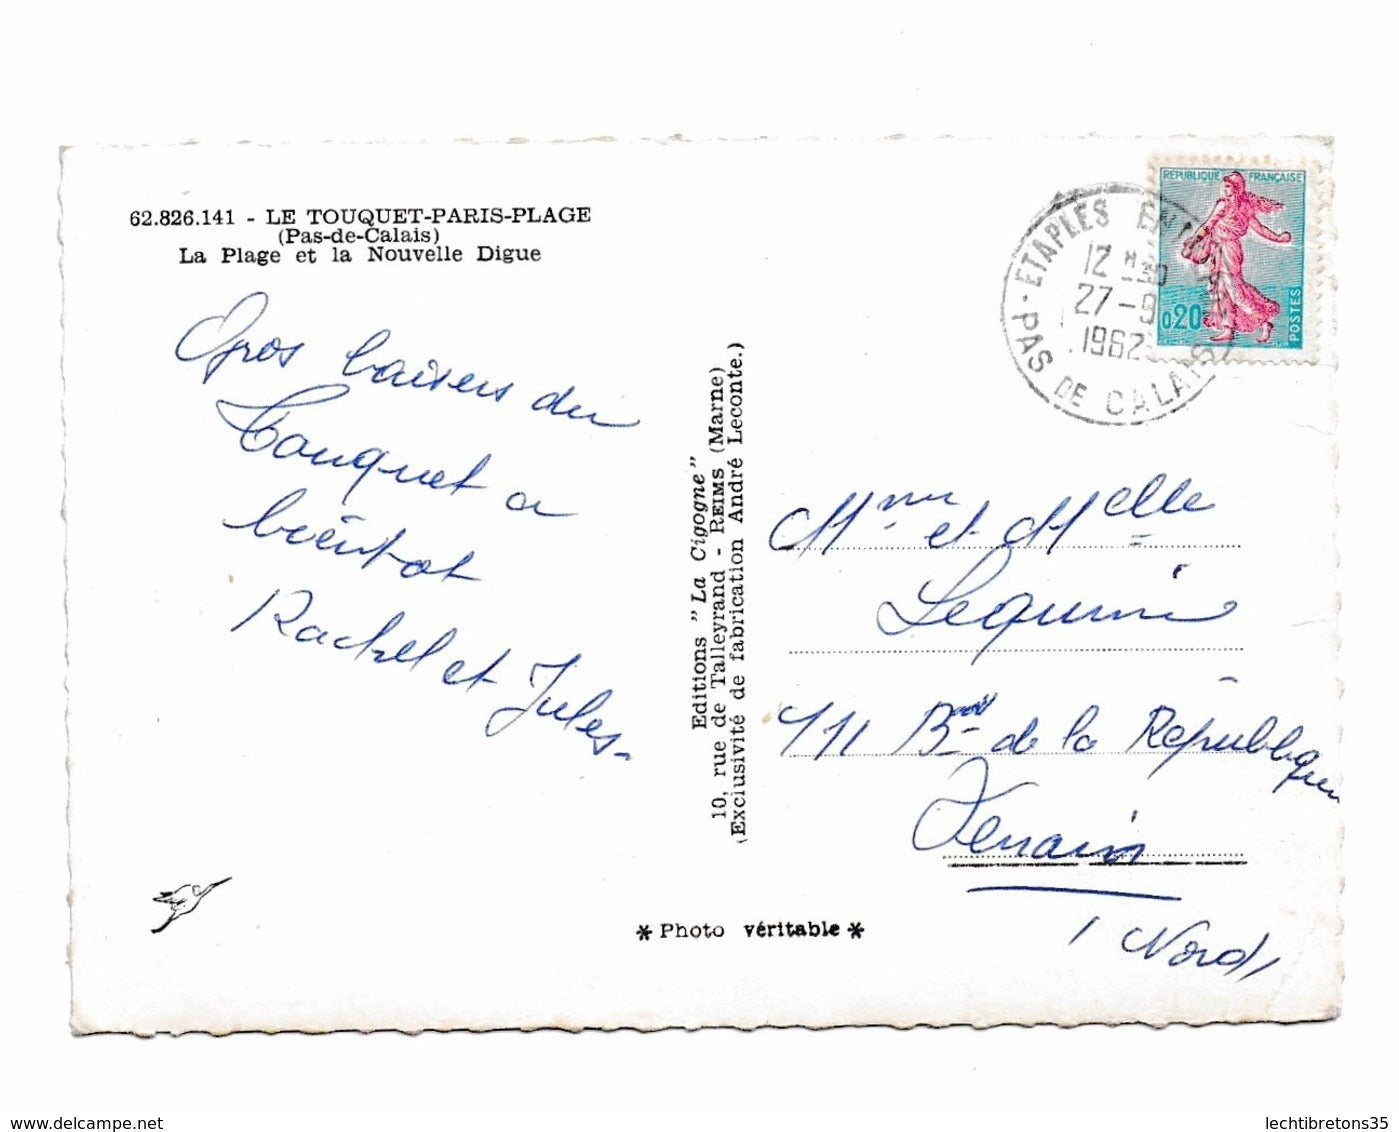 62.826.141 - LE TOUQUET-PARIS-PLAGE
(Pas-de-Calais)
La Plage et la Nouvelle Digue
Gros baisers du
Touquet a
bientot
Rachel et Jules-
Editions "La Cigogne"
10, rue de Talleyrand - REIMS (Marne)
(Exclusivité de fabrication André Leconte.)
* Photo véritable *
REPUBLIQUE FRANÇAISE
0,20
POSTES
ETAPLES
12 H30
27-9
1962
PAS DE CALAIS
Mme et Melle
Lequimi
Bard de la République
Denain
(Nord)
www.delcampe.net
lechtibretons35